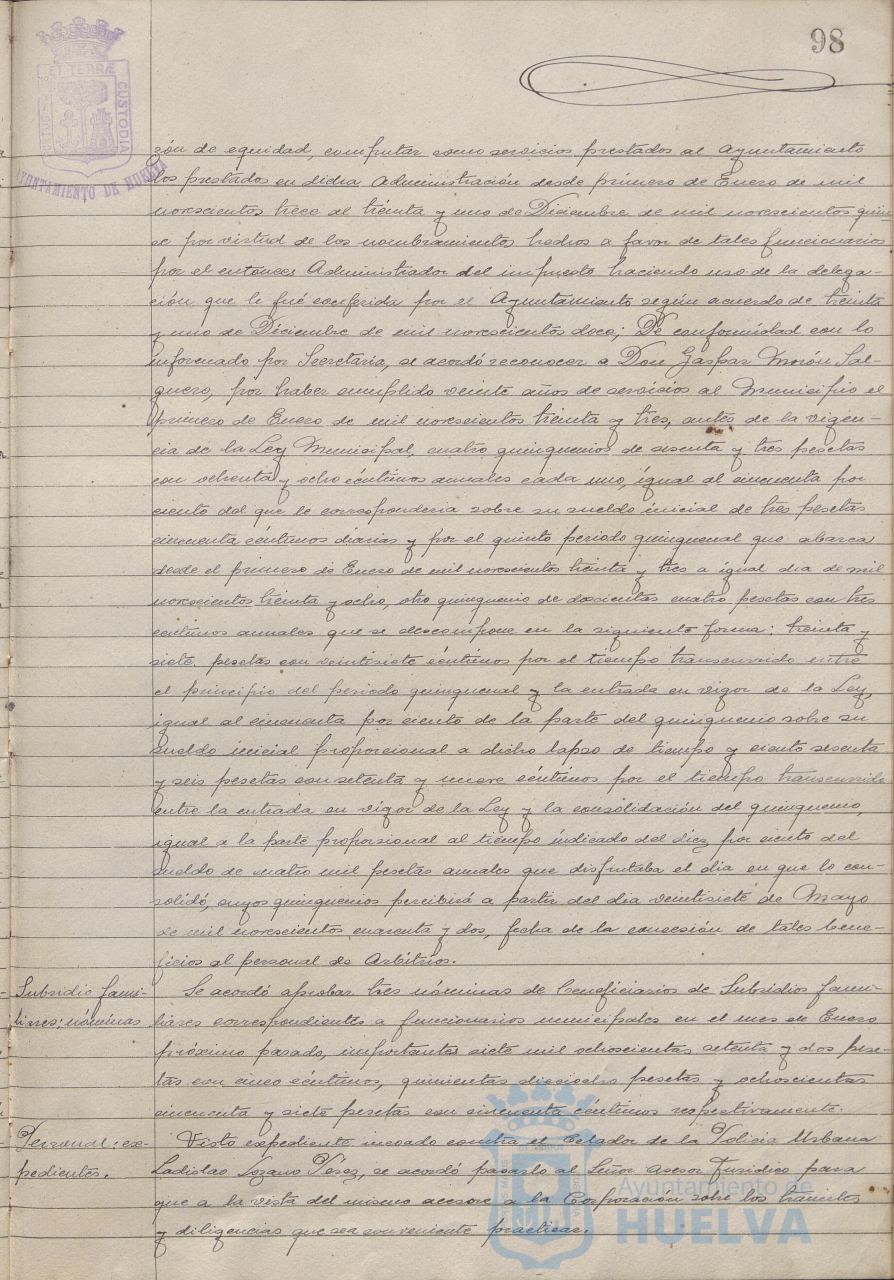 98
PORTUS MARIS ET TERRÆ CUSTODIA
AYUNTAMIENTO DE HUELVA
zón de equidad, computar como servicios prestados al Ayuntamiento
los prestados en dicha Administración desde primero de Enero de mil
novecientos trece al treinta y uno de Diciembre de mil novecientos quin
ce por virtud de los nombramientos hechos a favor de tales funcionarios
por el entonces Administrador del impuesto haciendo uso de la delega-
ción que le fué conferida por el Ayuntamiento según acuerdo de treinta
y uno de Diciembre de mil novecientos doce; De conformidad con lo
informado por Secretaría, se acordó reconocer a Don Gaspar Morón Sal-
guero, por haber cumplido veinte años de servicios al Municipio el
primero de Enero de mil novecientos treinta y tres, antes de la vigen-
cia de la Ley Municipal, cuatro quinquenios de sesenta y tres pesetas
con ochenta y ocho céntimos anuales cada uno, igual al cincuenta por
ciento del que le correspondería sobre su sueldo inicial de tres pesetas
cincuenta céntimos diarias y por el quinto periodo quinquenal que abarca
desde el primero de Enero de mil novecientos treinta y tres a igual dia de mil
novecientos treinta y ocho, otro quinquenio de doscientas cuatro pesetas con tres
céntimos anuales que se descompone en la siguiente forma: treinta y
siete pesetas con veintisiete céntimos por el tiempo transcurrido entre
el principio del periodo quinquenal y la entrada en vigor de la Ley,
igual al cincuenta por ciento de la parte del quinquenio sobre su
sueldo inicial proporcional a dicho lapso de tiempo y ciento sesenta
y seis pesetas con setenta y nueve céntimos por el tiempo transcurrido
entre la entrada en vigor de la Ley y la consolidación del quinquenio,
igual a la parte proporcional al tiempo indicado del diez por ciento del
sueldo de cuatro mil pesetas anuales que disfrutaba el dia en que lo con-
solidó, cuyos quinquenios percibirá a partir del dia veintisiete de Mayo
de mil novecientos cuarenta y dos, fecha de la concesión de tales bene-
ficios al personal de Arbitrios.
Subsidio fami-
liares: nóminas
Se acordó aprobar tres nóminas de beneficiarios de Subsidios fami-
liares correspondientes a funcionarios municipales en el mes de Enero
próximo pasado, importantes siete mil ochocientas setenta y dos pese-
tas con cinco céntimos, quinientas dieciocho pesetas y ochocientas
cincuenta y siete pesetas con cincuenta céntimos respectivamente.
Personal: ex-
pedientes.
Visto expediente incoado contra el Celador de la Policía Urbana
Ladislao Lozano Pérez, se acordó pasarlo al Señor Asesor Jurídico para
que a la vista del mismo asesore a la Corporación sobre los trámites
y diligencias que sea conveniente practicar.
Ayuntamiento de
HUELVA